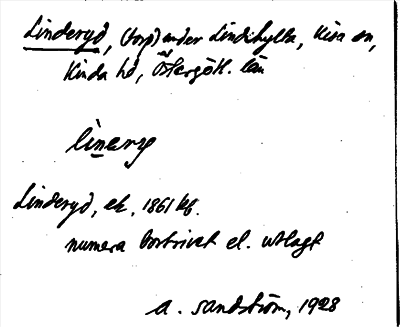 Linderyd, (torp) under Lindekylla, Kisa sn,
Kinda hd, Östergötl. län
lìnery
Linderyd, ek. 1861 kf.
numera bortrivet el. utlagt
A. Sandström, 1928